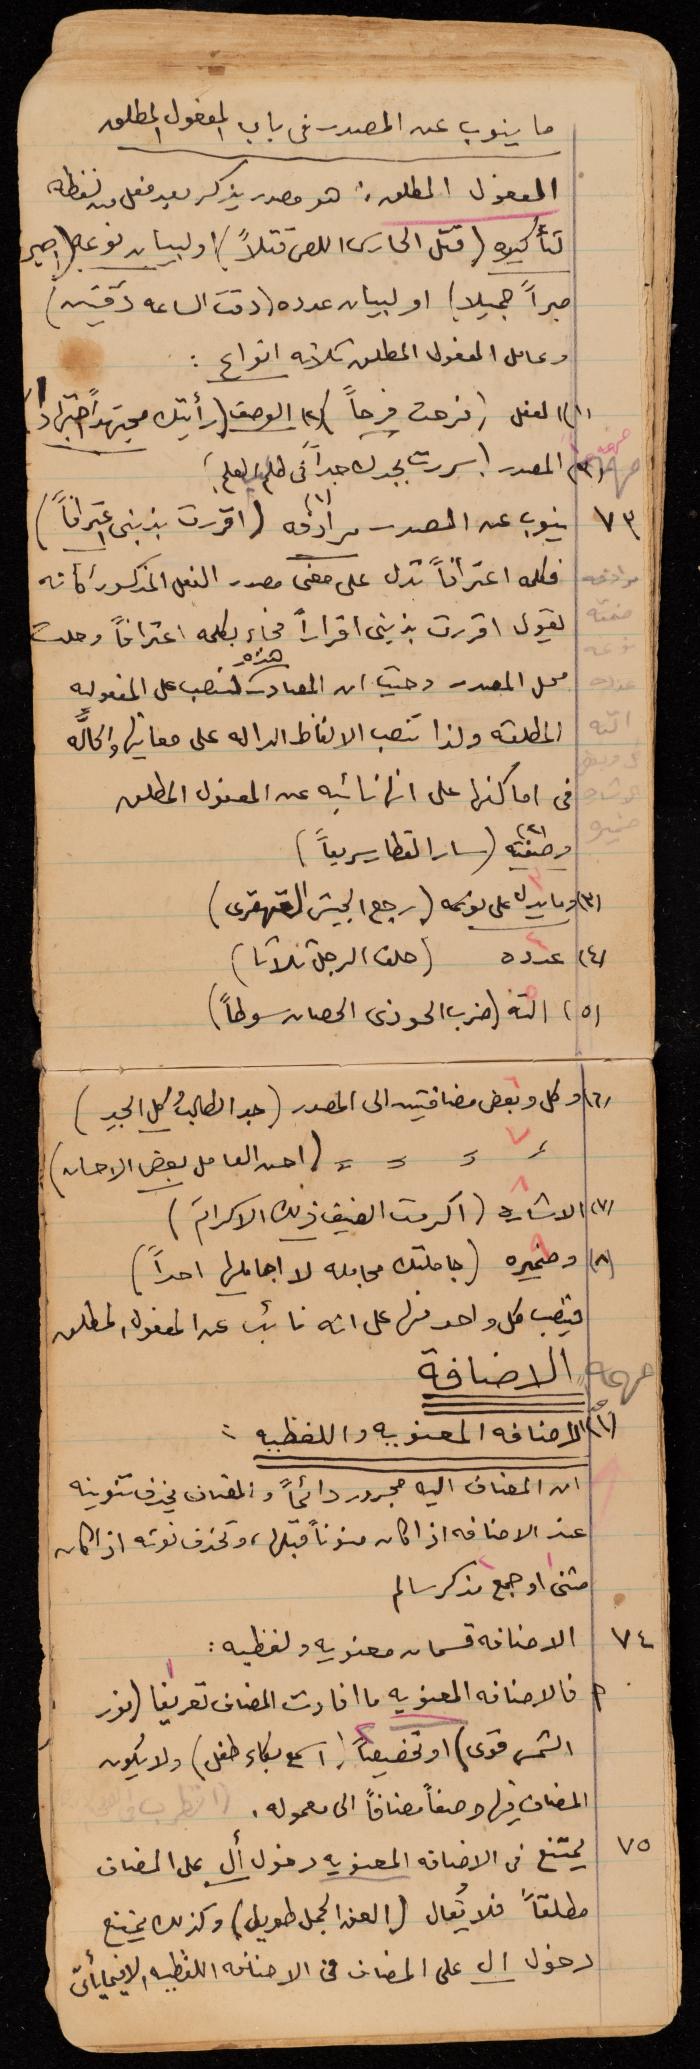 ما ينوب عن المصدر فى باب المفعول المطلق
المفعول المطلق: هو مصدر يذكر بعد فعل من لفظه
لتأكيده (قتل الحارس اللص قتلاً) او لبيان نوعه (اصبر
صبراً جميلا) او لبيان عدده (دقت الساعه دقتين)
وعامل المفعول المطلق ثلاثه انواع :
(١) الفعل (فرحت فرحاً) (٢) الوصف (رأيتك مجتهداً اجتهاداً)
(٣) المصدر (سررت بجدك جداً فى طلب العلم)
٧٣ ينوب عن المصدر (١) مرادفه (اقررت بذنبى اعترافاً)
فكلمه اعترافاً تدل على معنى مصدر الفعل المذكور كأنه
يقول اقررت بذنبى اقراراً فجاء بكلمه اعترافاً وحلت
محل المصدر وحيث ان هذه المصادر تنصب على المفعوليه
المطلقه ولذا تنصب الالفاظ الداله على معانيها والحالَّه
فى اماكنها على انها نائبه عن المفعول المطلق
(٢) وصفته (سار القطار سريعاً)
(٣) وما يدل على نوعه (رجع الجيش القهقرى)
(٤) عدده (حلف الرجل ثلاثا)
(٥) آلته (ضرب الحوذى الحصان سوطاً)
مرادفه
صفته
نوعه
عدده
آلته
كل وبعض
الاشاره
ضميره
(٦) وكل وبعض مضافتين الى المصدر (جد الطالبُ كل الجدِ)
〃 〃 〃 〃 (احسن العامل بعض الاحسان)
(٧) الاشاره (اكرمت الضيف ذلك الاكرام)
(٨) وضميره (جاملتك مجامله لا اجاملها احداً)
فينصب كل واحد منها على انه نائب عن المفعول المطلق
الاضافة
(١) الاضافه المعنويه واللفظيه :
ان المضاف اليه مجرور دائماً والمضاف يحذف تنوينه
عند الاضافه اذا كان منوناً قبلها، وتحذف نونه اذا كان
مثنى او جمع مذكر سالم
٧٤ الاضافه قسمان معنويه ولفظيه :
فالاضافه المعنويه ما افادت المضاف تعريفا (نور
الشمس قوى) او تخصيصاً (اسمع بكاء طفل) ولا يكون
المضاف فيها وصفاً مضافاً الى معموله .
٧٥ يمتنع فى الاضافه المعنويه دخول أل على المضاف
مطلقاً فلا يُقال (العنق الجمل طويل) وكذلك يمتنع
دخول ال على المضاف فى الاضافه اللفظيه الا فيما يأتى